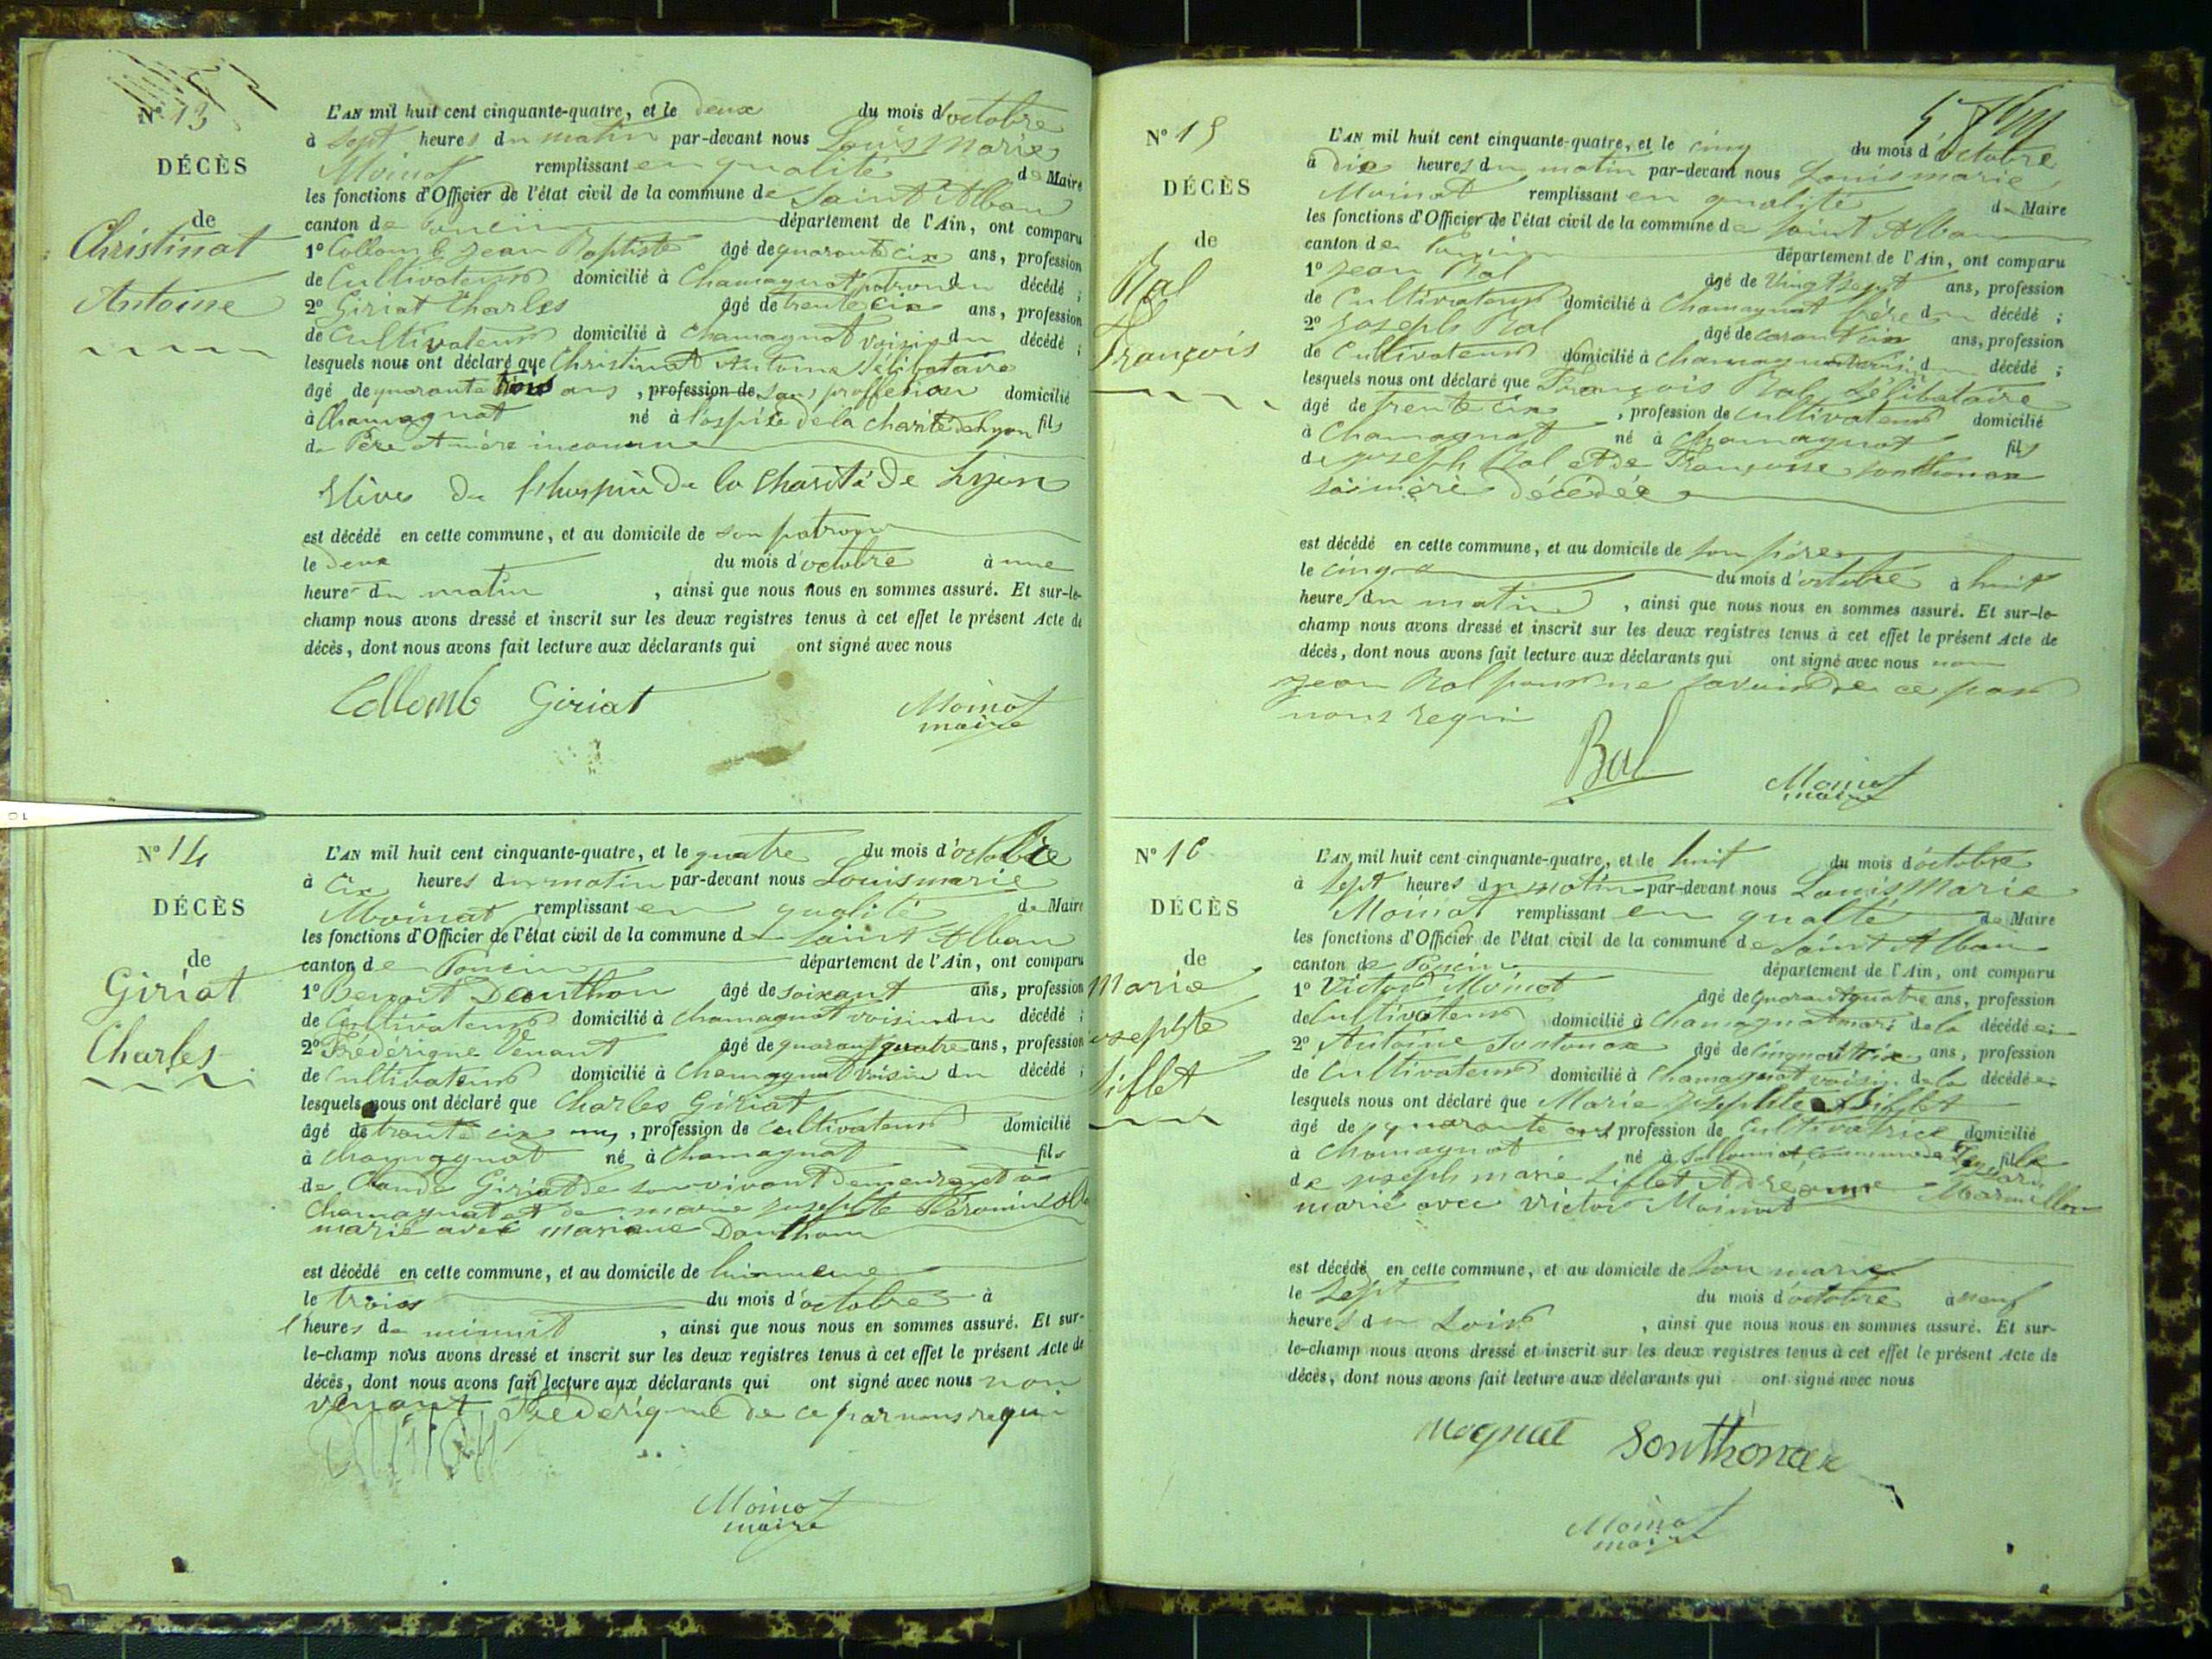 N° 13
DÉCÈS
de
Christinat
Antoine
L'AN mil huit cent cinquante-quatre, et le deux du mois d'octobre
à sept heures du matin par-devant nous Louis Marie
Moinat remplissant en qualité de Maire
les fonctions d'Officier de l'état civil de la commune de Saint Alban
canton de Poncin département de l'Ain, ont comparu
1° Collomb Jean Baptiste âgé de quarante cix ans, profession
de Cultivateur domicilié à Chamagnat patron du décédé ;
2° Giriat Charles âgé de trente cix ans, profession
de Cultivateur domicilié à Chamagnat voisin du décédé ;
lesquels nous ont déclaré que Christinat Antoine Sélibataire
âgé de quarante trois ans , profession de sans proffetion domicilié
à Chamagnat né à l'ospice de la Charité de Lyon fils
de Père et mère inconnue
Elève de l'hospice de la Charité de Lyon
est décédé en cette commune, et au domicile de son patron
le deux du mois d'octobre à une
heure du matin , ainsi que nous nous en sommes assuré. Et sur-le-
champ nous avons dressé et inscrit sur les deux registres tenus à cet effet le présent Acte de
décès, dont nous avons fait lecture aux déclarants qui ont signé avec nous
Collomb Giriat Moinat
maire
N° 14
DÉCÈS
de
Giriat
Charles
L'AN mil huit cent cinquante-quatre, et le quatre du mois d'octobre
à Cix heures du matin par-devant nous Louis marie
Moinat remplissant en qualité de Maire
les fonctions d'Officier de l'état civil de la commune d Saint Alban
canton de Poncin département de l'Ain, ont comparu
1° Benoit Danthon âgé de soixant ans, profession
de Cultivateur domicilié à Chamagnat voisin du décédé ;
2° Frédérique Venant âgé de quarant quatre ans, profession
de Cultivateur domicilié à Chamagnat voisin du décédé ;
lesquels nous ont déclaré que Charles Giriat
âgé de trante cix ans , profession de Cultivateur domicilié
à Chamagnat né à Chamagnat fils
de Claude Giriat de son vivant demeurant à
Chamagnat et de marie josephte
marié avec mariane Danthon
est décédé en cette commune, et au domicile de luimeme
le trois du mois d'octobre à
heures de minuit , ainsi que nous nous en sommes assuré. Et sur-
le-champ nous avons dressé et inscrit sur les deux registres tenus à cet effet le présent Acte de
décès, dont nous avons fait lecture aux déclarants qui ont signé avec nous non
venant Frédérique de ce par nous requi
Moinat
maire
N° 15
DÉCÈS
de
Bal
François
L'AN mil huit cent cinquante-quatre, et le cinq du mois d'octobre
à dix heures du matin par-devant nous Louis marie
Moinat remplissant en qualité de Maire
les fonctions d'Officier de l'état civil de la commune de Saint Alban
canton de Poncin département de l'Ain, ont comparu
1° Jean Bal âgé de Vingt sept ans, profession
de Cultivateur domicilié à Chamagnat frère du décédé ;
2° Joseph Bal âgé de ans, profession
de Cultivateur domicilié à Chamagnat voisin du décédé ;
lesquels nous ont déclaré que François Bal, Sélibataire
âgé de trente cix , profession de Cultivateur domicilié
à Chamagnat né à Chamagnat fils
de Joseph Bal et de Françoise Sonthonax
sa mère décédée
est décédé en cette commune, et au domicile de son père
le cinq du mois d'octobre à huit
heures du matin , ainsi que nous nous en sommes assuré. Et sur-le-
champ nous avons dressé et inscrit sur les deux registres tenus à cet effet le présent Acte de
décès, dont nous avons fait lecture aux déclarants qui ont signé avec nous non
Jean Bal pour ne savoir de ce par
nous requi
Bal Moinat
maire
N° 16
DÉCÈS
de
Marie
josephte
Liflet
L'AN mil huit cent cinquante-quatre, et le huit du mois d'octobre
à sept heures du matin par-devant nous Louis Marie
Moinat remplissant en qualté de Maire
les fonctions d'Officier de l'état civil de la commune de Saint Alban
canton de Poncin département de l'Ain, ont comparu
1° Victor Moinat âgé de quarant quatre ans, profession
de Cultivateur domicilié à Chamagnat mari de la décédée ;
2° Antoine Sontonax âgé de ans, profession
de Cultivateur domicilié à Chamagnat voisin de la décédée
lesquels nous ont déclaré que Marie Josephte Liflet
âgé de quarante ans profession de Cultivatrice domicilié
à Chamagnat né à commune de fille
de joseph marie Liflet et Marmillon
marié avec Victor Moinat
est décédé en cette commune, et au domicile de son marie
le sept du mois d'octobre à neuf
heures du Soir , ainsi que nous nous en sommes assuré. Et sur-
le-champ nous avons dressé et inscrit sur les deux registres tenus à cet effet le présent Acte de
décès, dont nous avons fait lecture aux déclarants qui ont signé avec nous
Sonthonax
Moinat
maire